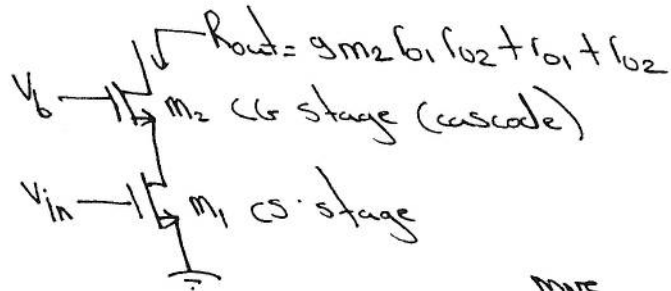 Rout = gm2 ro1 ro2 + ro1 + ro2
Vb
m2 CG stage (cascode)
Vin
m1 CS stage